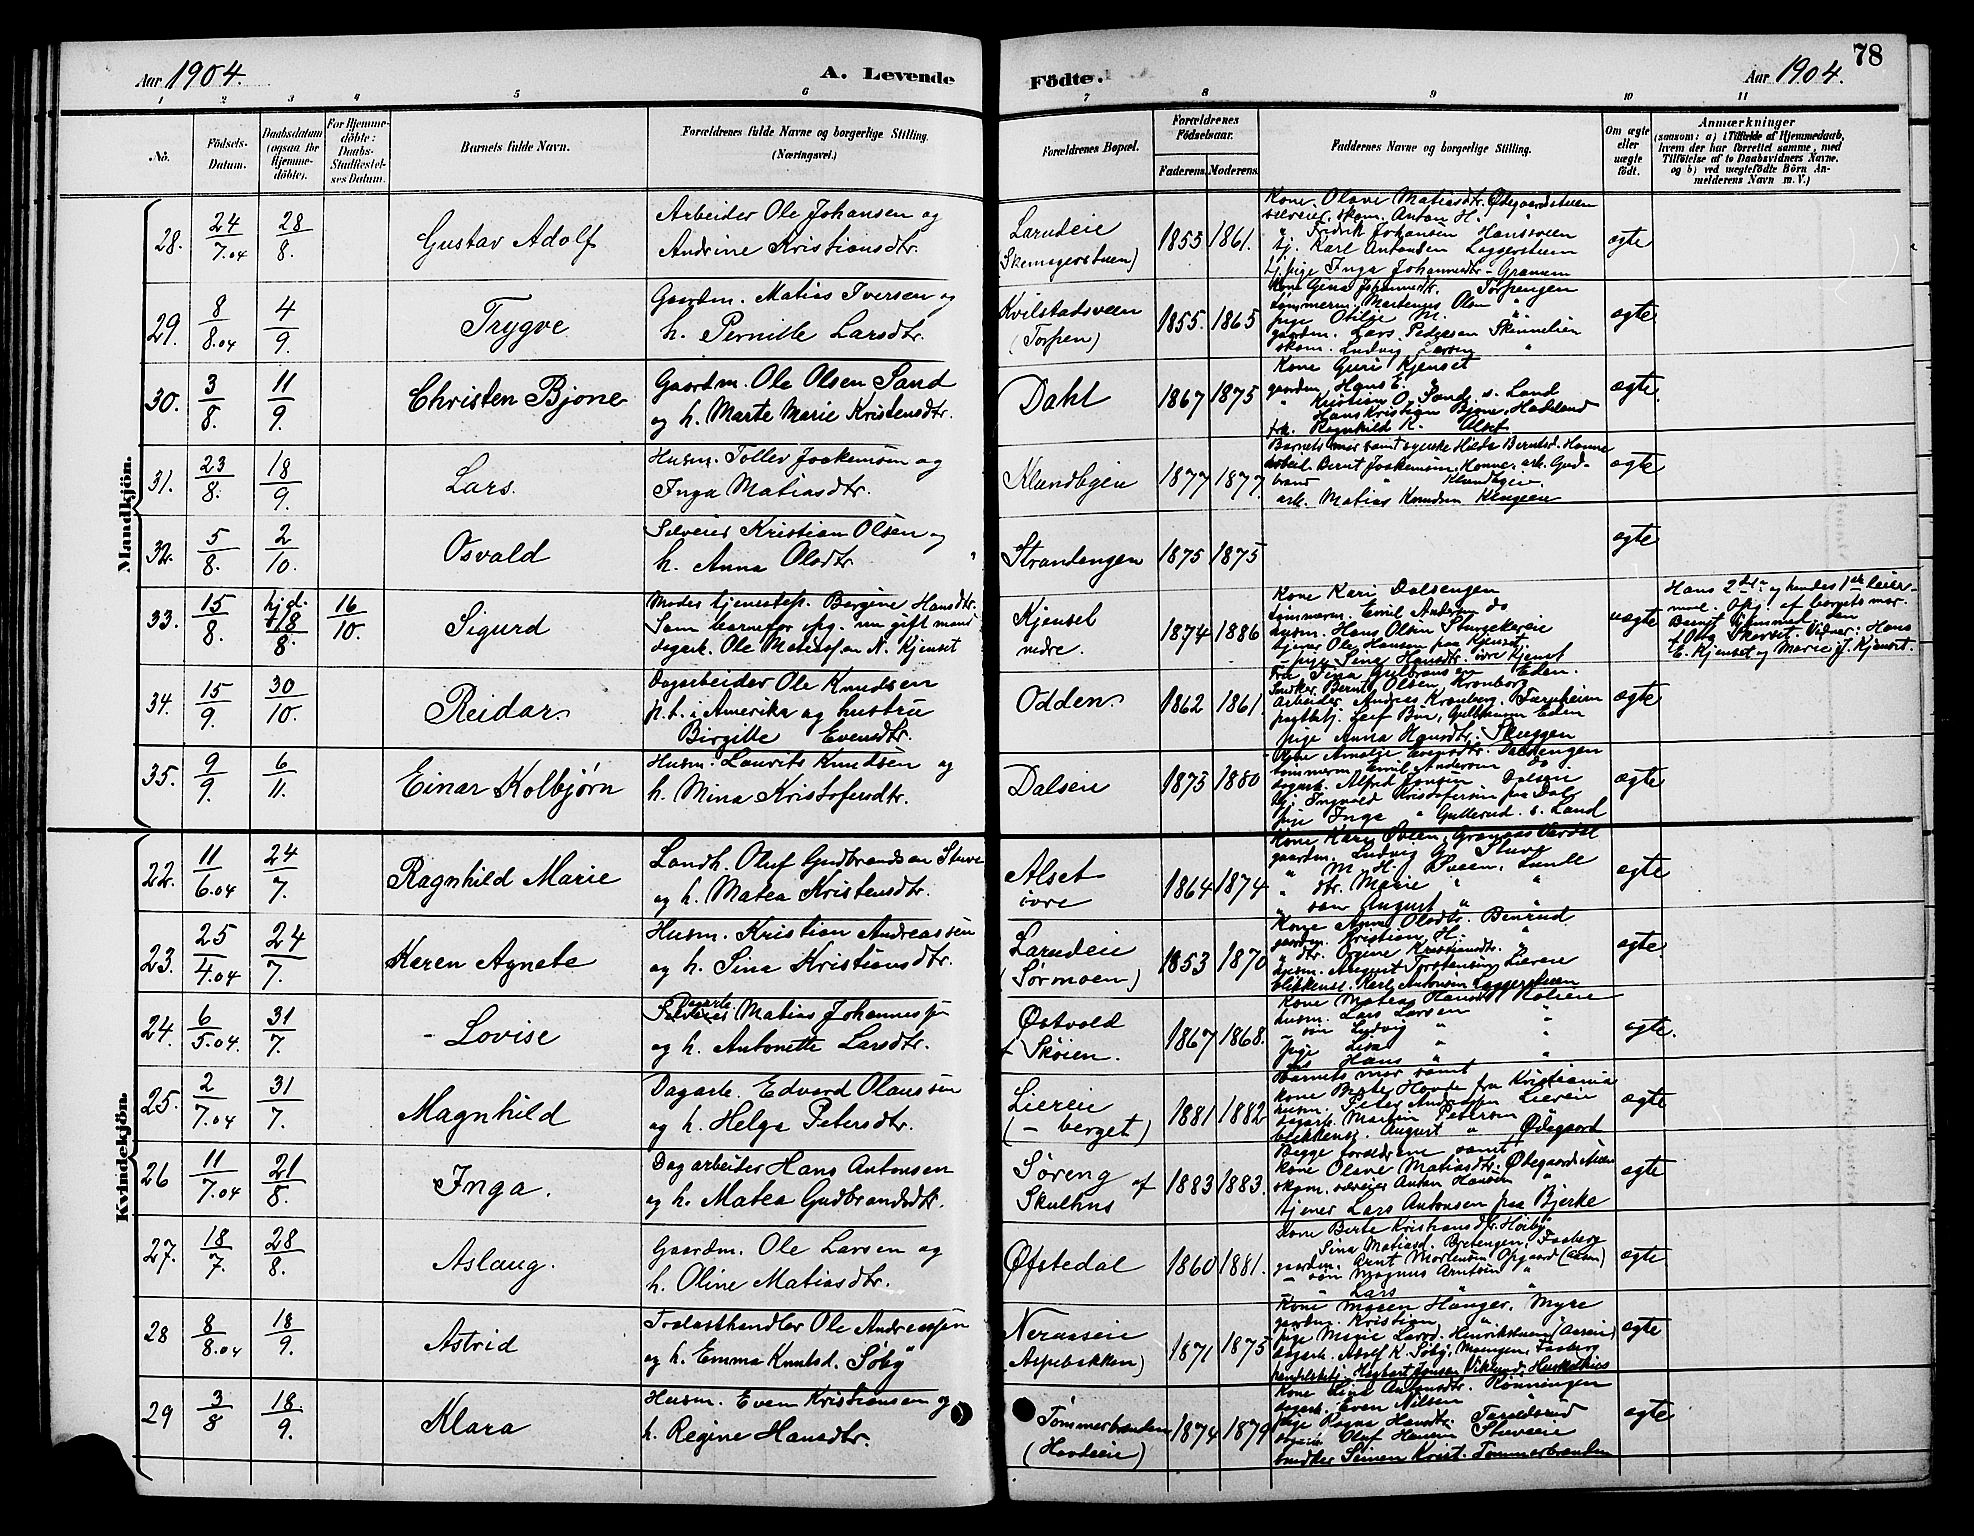 78
Aar 1904.
A. Levende
Födte.
Aar 1904.
1 2 3 4 5 6 7 8 9 10 11
No.
Födsels-Datum.
Daabsdatum (ogsaa for Hjemme-döbte).
For Hjemme-döbte: Daabs-Stadfæstel-ses Datum.
Barnets fulde Navn.
Forældrenes fulde Navne og borgerlige Stilling. (Næringsvei.)
Forældrenes Bopæl.
Forældrenes Födselsaar.
Faderens. Moderens.
Faddernes Navne og borgerlige Stilling.
Om ægte eller uægte födt.
Anmærkninger
(saasom: a) i Tilfælde af Hjemmedaab, hvem der har forrettet samme, med Tilföielse af to Daabsvidners Navne. og b) ved uægtefödte Börn An-melderens Navn m. V.)
Mandkjön.
28. 24/7.04 28/8. Gustav Adolf
Arbeider Ole Johansen og
Andrine Kristiansdtr.
Larudeie
(Skomagerstuen)
1855 1861.
Kone Olave Matiasdtr. Ødegaardstuen
selveier, skom. Anton H. "
" Fredrik Johansen Hansveen
tj. Karl Antonsen Laggerstuen
tj. pige Inga Johannesdtr. Granum
ægte
29. 8/8.04 4/9. Trygve
Gaardm. Matias Iversen og
h. Pernille Larsdtr.
Kvilstadsveen
(Torpen)
1855. 1865
Kone Gina Johannesdtr. Torpengen
tømmerm. Martenus Olsen "
pige Otilje M. "
gaardm. Lars Pedersen Skinnelien
skom. Ludvig Larsen "
ægte
30. 3/8. 11/9. Christen Bjone
Gaardm. Ole Olsen Sand
og h. Marte Marie Kristensdtr.
Dahl
1867 1875
Kone Guri Kjenset
gaardm. Hans E. "
" Kristian O. Sand, s. Land
Hans Kristian Bjone, Hadeland
frk. Ragnhild K. Alset
ægte.
31. 23/8. 18/9. Lars.
Husm. Tollev Joakemsen og
Inga Matiasdtr.
Klundbyeie
1877 1877.
Barnets mor samt pyske Hilda Berntsd. Honne
arbeid. Bernt Joakemsen, Honne, ark. Gud-
brand " Klundbyeie.
ark. Matias Knudsen
ægte
32. 5/8. 2/10. Osvald
Selveier Kristian Olsen og
h. Anna Olsdtr.
Strandengen
1875 1875
ægte
33. 15/8. hj.d. 18/8. 16/10. Sigurd
Moder tjenestep. Bergine Hansdtr.
Som barnefar opg. un gift mand
dagark. Ole Matiassen N. Kjenset
Kjenset
nedre.
1874 1886
Kone Kari Dalsengen
tømmerm. Emil Andersen do
husm. Hans Olsen
tjener Ole Hansen paa Kjenset.
pige Sina Hansdtr. øvre Kjenset
uægte
Hans 2det og hendes 1ste leier-
maal. Opg. af barnets mor.
Barnet hjemmed. den
af Skovset. Vidner: Hans
E. Kjenset og Marie J. Kjenset.
34. 15/9. 30/10. Reidar.
Dagarbeider Ole Knudsen
p.t. i Amerika og hustru
Birgitte Evensdtr.
Odden.
1862 1861
Fru Tina Gulbransen Eden.
Snedker Bernt Olsen, Kronborg
Arbeider Andreas Kronborg,
Leif Bue, Eden
pige Anna Hansdtr. Skuggen
ægte
35. 9/9. 6/11. Einar Kolbjørn
Husm. Laurits Knudsen og
h. Mina Kristofersdtr.
Dalseie
1873 1880
Pige Amalie Evensdtr. Dalsengen
tømmerm. Emil Andersen do
dagark. Alfred Jensen Dalseie
tj. Ingvald Kristofersen paa Dal
pige Inga " Gullerud. s. Land
ægte
Kvindekjön.
22. 11/6.04 24/7. Ragnhild Marie
Landh. Oluf Gudbrandsen Stuve
og h. Matea Kristensdtr.
Alset
øvre
1864 1874
Kone Kari Sveen, Granaas Vardal
gaardm. Ludvig G. Stuve
" M. H. Sveen, Lunde
" dtr. Marie " "
" søn August " "
ægte
23. 25/4.04 24/7. Karen Agnete
Husm. Kristian Andreassen
og h. Sina Kristiansdtr.
Larudeie
(Sørmoen)
1853 1870
Kone Agne Olsdtr. Benrud
gaardm. Kristian H. "
" dtr. Orgine Kristiansdtr. "
husm. August Torstensen, Liereie
blikkensl. Karl Antonsen Laggerstuen
ægte.
24. 6/5.04. 31/7. - Lovise
Dagarb. Matias Johannessen
og h. Antonette Larsdtr.
Østvold
f Skøien.
1867 1868.
Kone Matea Hansdtr.
husm. Lars Larsen "
- søn Ludvig " "
pige Lisa " "
Hans " "
ægte.
25. 2/7.04 31/7. Magnhild
Dagarb. Edvard Olaussen
og h. Helga Petersdtr.
Liereie
(- berget)
1881 1882
Barnets mor samt
kone Berte Hovde fra Kristiania
husm. Peter Andreassen Liereie
dagarb. Martin Petersen "
blikkensl. August " Ødegaard
ægte
26 11/7.04 21/8. Inga.
Dagarbeider Hans Antonsen
og h. Matea Gudbrandsdtr.
Søreng af
Skulhus
1883 1883.
Begge forældrene samt
kone Olave Matiasdtr. Ødegaardstuen
skom. selveier Anton Hansen "
tjener Lars Antonsen paa Bjerke
ægte
27. 18/7. 28/8. Aslaug.
Gaardm. Ole Larsen og
h. Oline Matiasdtr.
Øfstedal
1860 1881.
Kone Berte Kristiansdtr. Høiby
Sina Matiasd. Bretengen, Faaberg
gaardm. Arnt Mortensen Opgaard (Aasen)
- søn Magnus Arntsen "
- " Lars " "
ægte
28 8/8.04 18/9. Astrid
Trælasthandler Ole Andreassen
og h. Emma Knutsd. Søby
Neraaseie
(Aspebakken)
1871 1875
Kone Maren Hanger, Myre
gaardm. Kristian "
pige Marie Larsd. Henrikstuen (Aaseie)
dagark. Adolf K. Søby, Moengen, Faaberg
handelsbetj. Hagbart Jensen Viklund, Hunskothus
ægte
29 3/8 18/9. Klara
Husm. Even Kristiansen og
h. Regine Hansdtr.
Tømmerbraaten
(Hovdeeie)
1874 1879
Kone Lina Antonsdtr. Rønningen
dagark. Even Nilsen "
pige Ragna Hansdtr. Tandsrud
Oluf Hansen Stuveeie
snedker Simen Krist. Tømmerbraaten
ægte